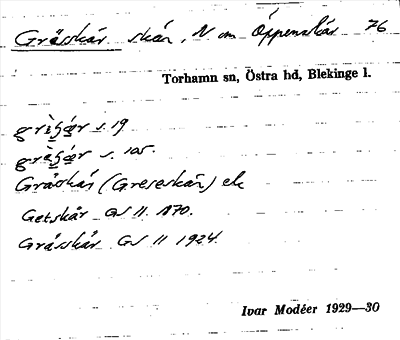 Grässkär skär, N om Öppenskär 76
Torhamn sn, Östra hd, Blekinge l.
s. 19
s. 105.
Gräskär (Greseskär) ek
Getskär GS II. 1870.
Grässkär GS II 1924.
Ivar Modéer 1929—30